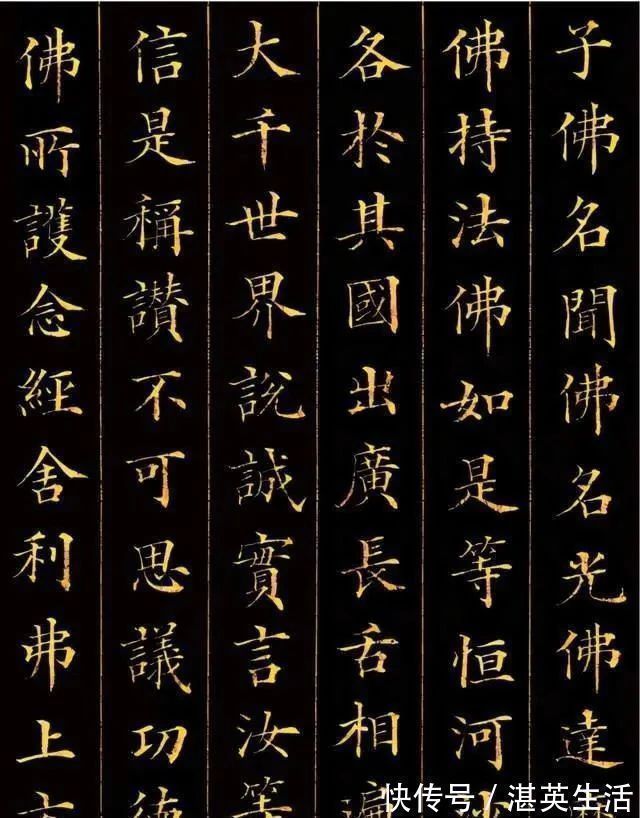 子佛名聞佛名光佛達
佛持法佛如是等恒河
各於其國出廣長舌相
大千世界說誠實言汝等
信是稱讚不可思議功德
佛所護念經舍利弗上
快传号/湛英生活